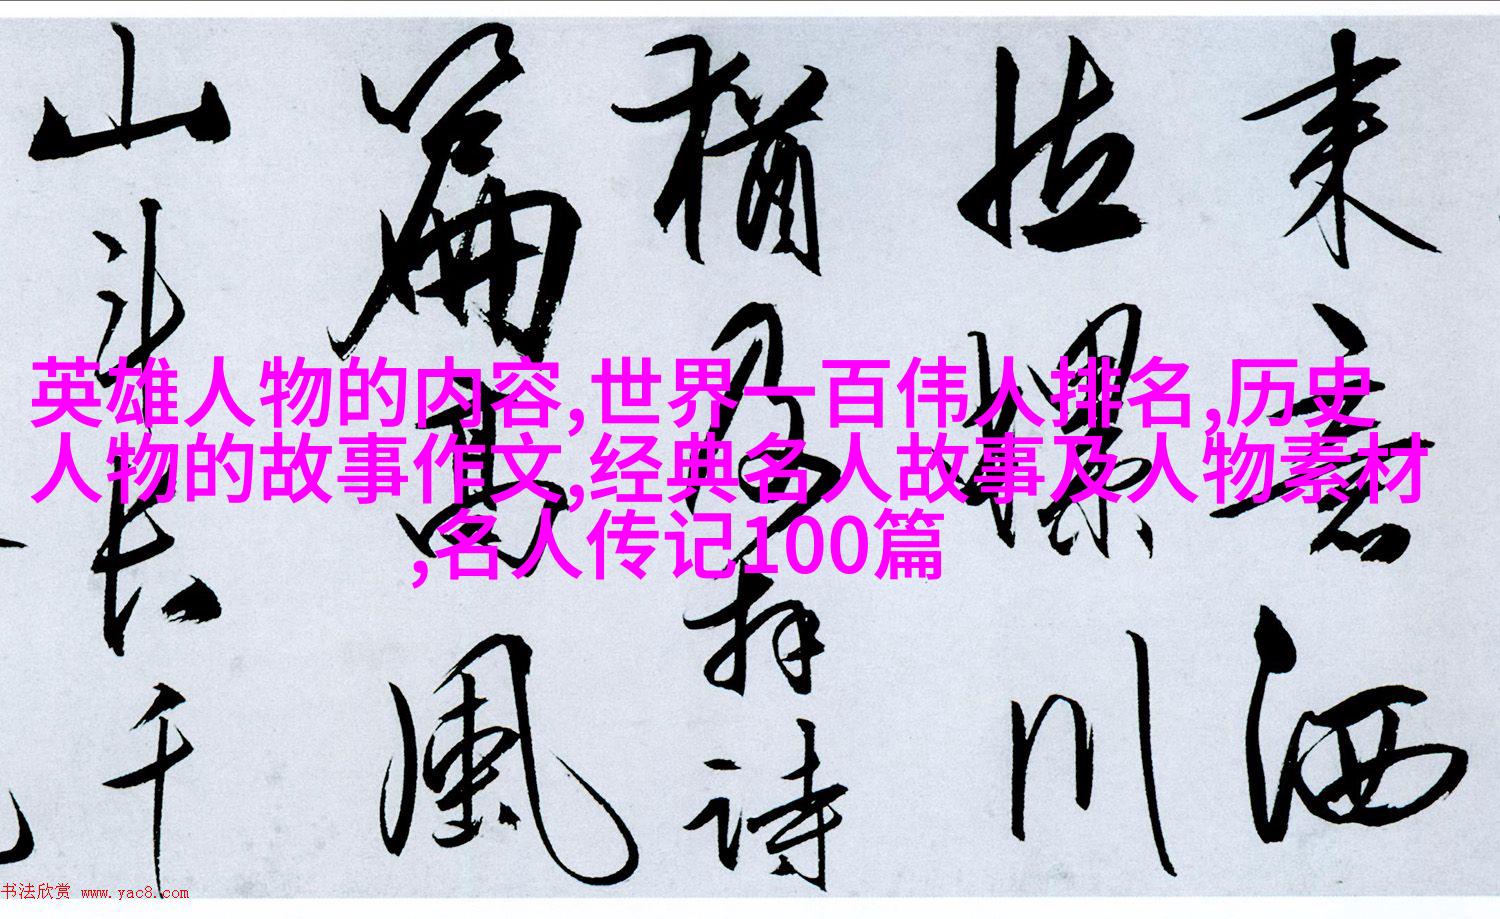 来意洒
拈
川
犹及拜诗
篇高风
山斗长千
英雄人物的内容,世界一百伟人排名,历史
人物的故事作文,经典名人故事及人物素材
,名人传记100篇
书法欣赏 www.yac8.com